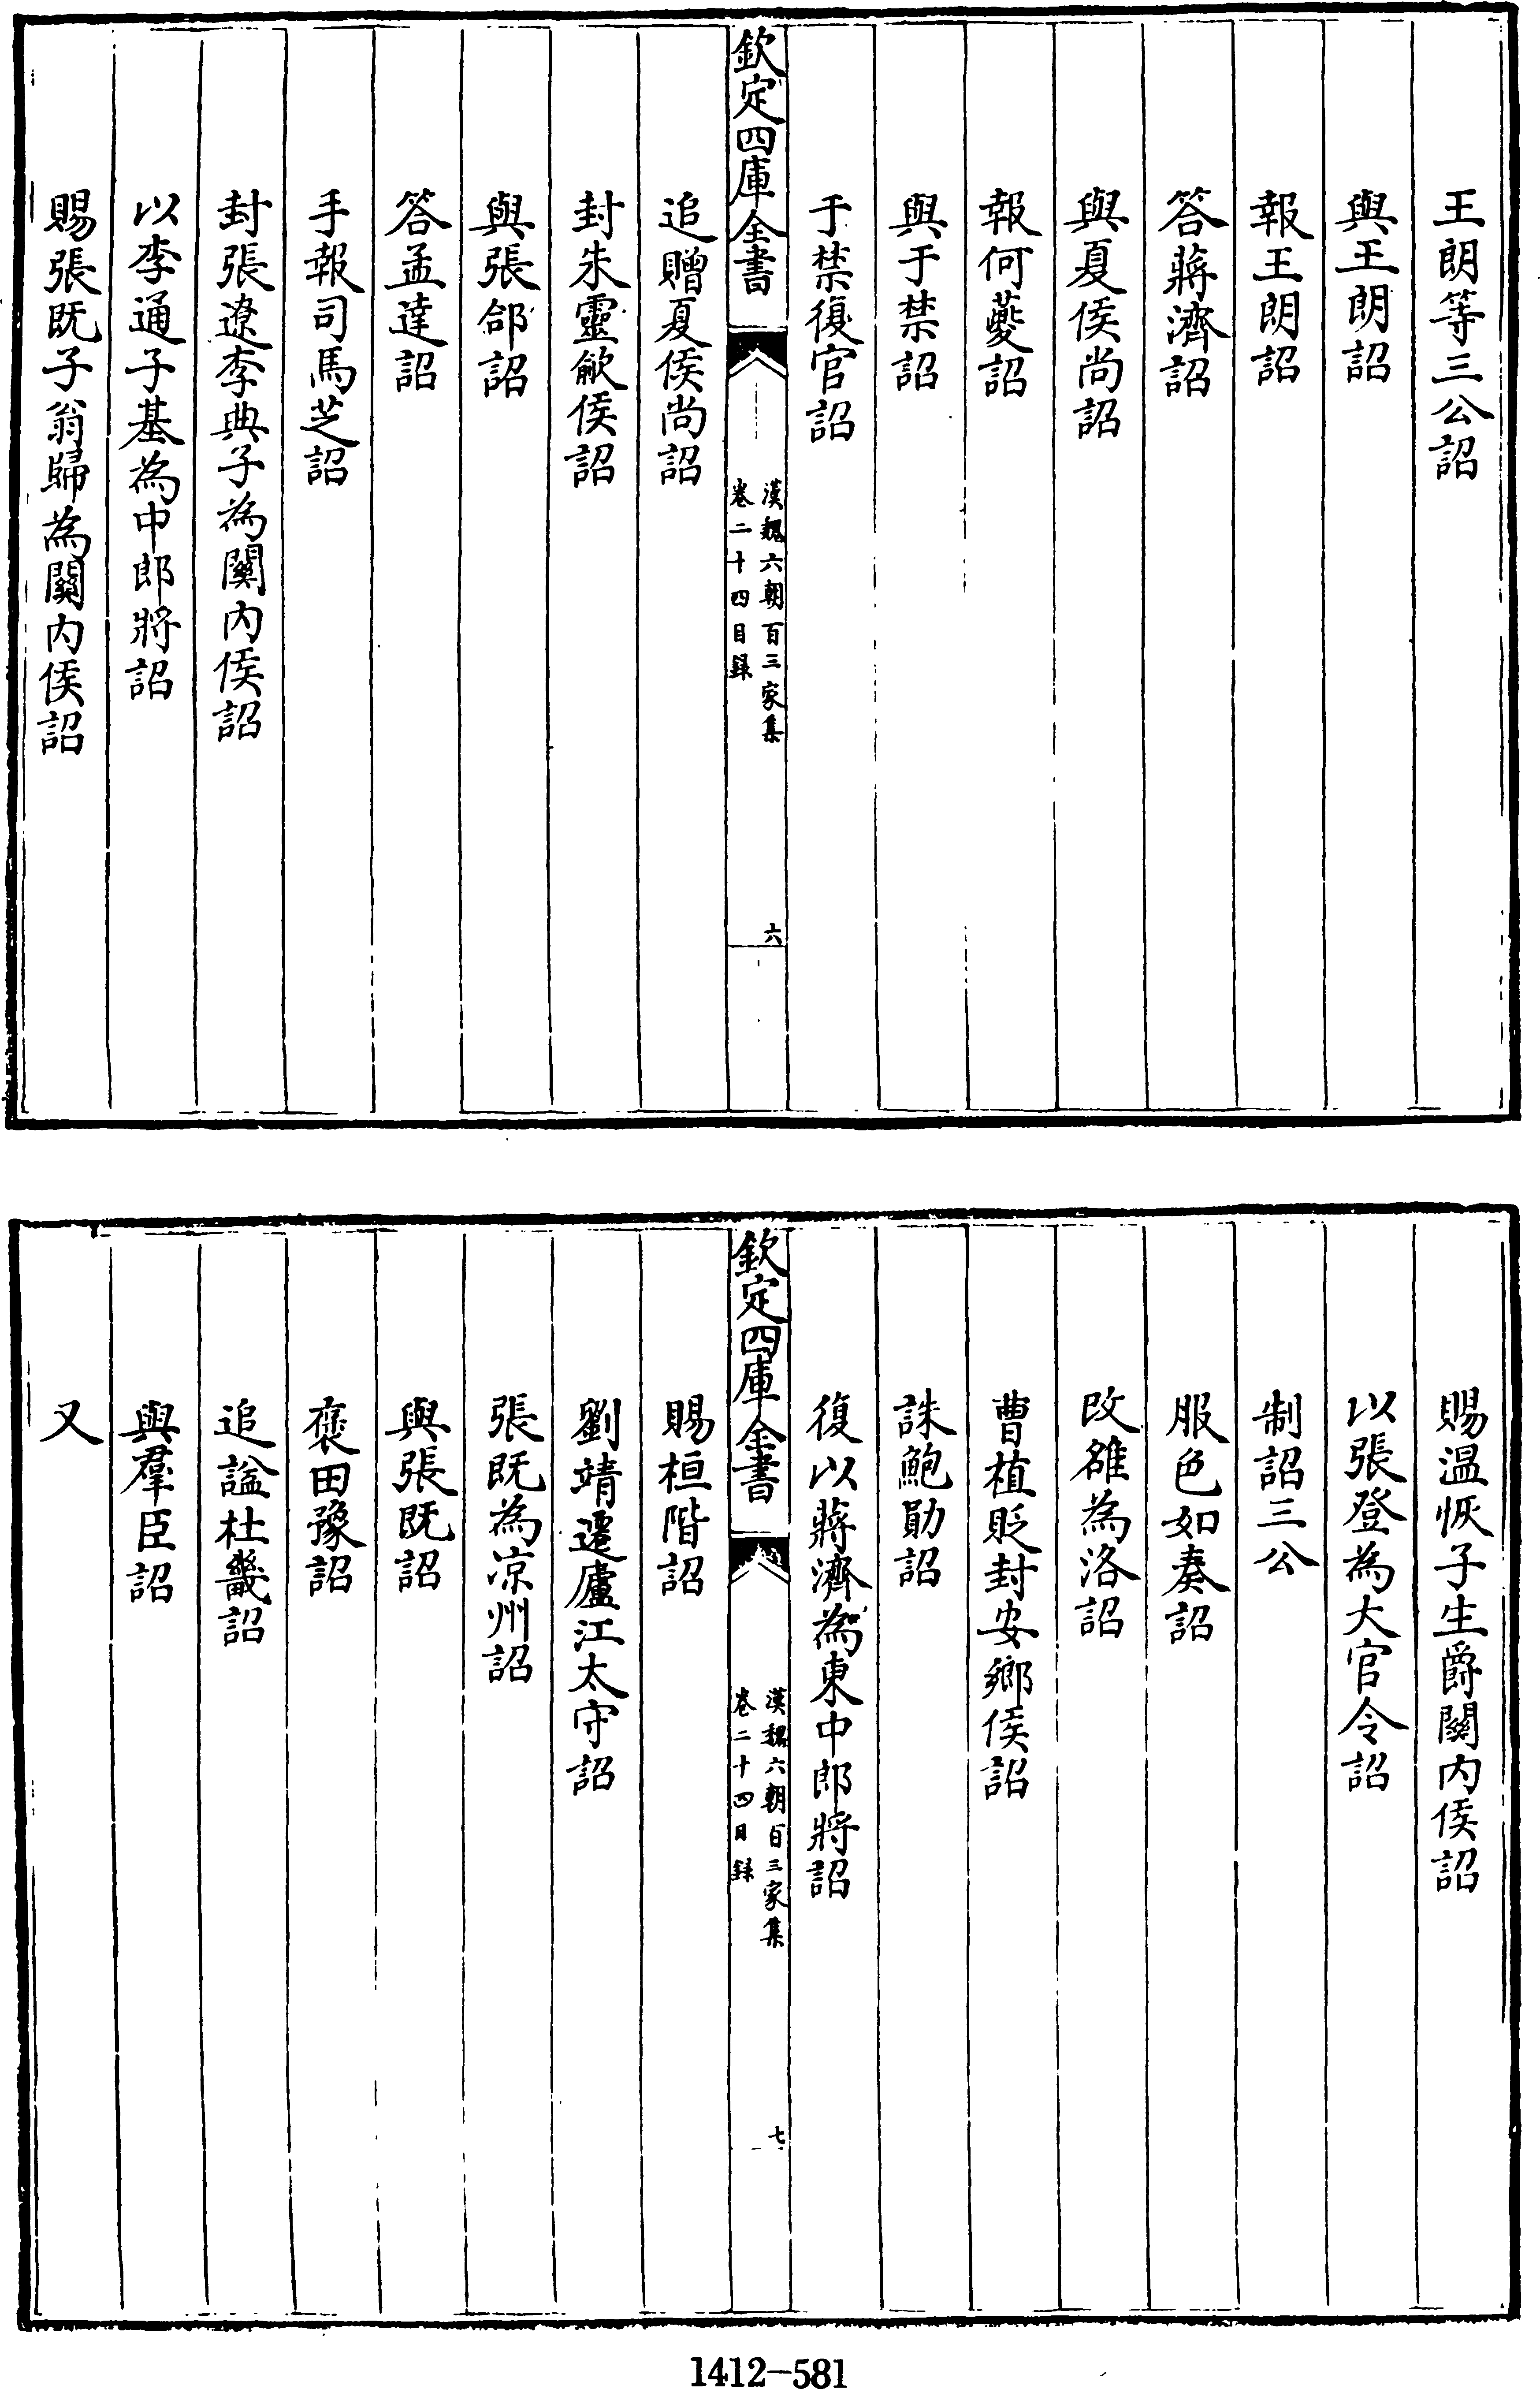 王朗等三公詔
與王朗詔
報王朗詔
答蔣濟詔
與夏侯尚詔
報何夔詔
與于禁詔
于禁復官詔
欽定四庫全書
漢魏六朝百三家集
卷二十四目録
六
追贈夏侯尚詔
封朱靈鄃侯詔
與張郃詔
答孟達詔
手報司馬芝詔
封張遼李典子為關内侯詔
以李通子基為中郎將詔
賜張既子翁歸為關内侯詔
賜温恢子生爵關内侯詔
以張登為大官令詔
制詔三公
服色如奏詔
改雒為洛詔
曹植貶封安鄉侯詔
誅鮑勛詔
復以蔣濟為東中郎將詔
欽定四庫全書
漢魏六朝百三家集
卷二十四目録
七
賜桓階詔
劉靖遷廬江太守詔
張既為凉州詔
與張既詔
褒田豫詔
追諡杜畿詔
與羣臣詔
又
1412-581